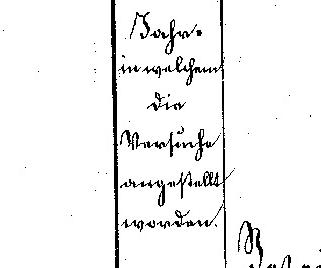 Jahr
in welchem
die
Versuche
angestellt
worden.